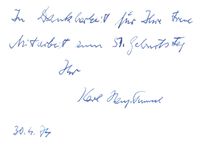 In Dankbarkeit für Ihre treue
Mitarbeit zum 51. Geburtstag
Ihr
Karl
30.4.